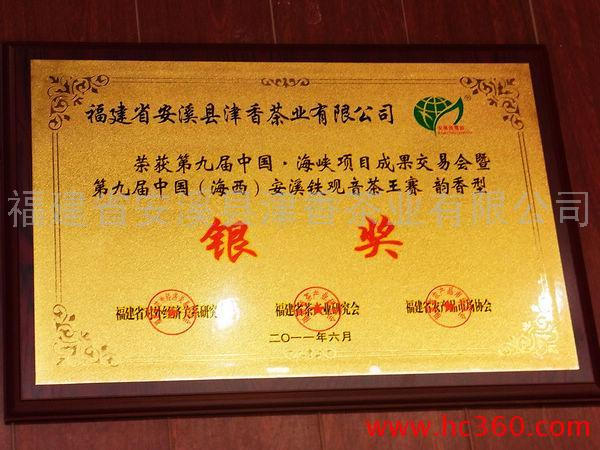 福建省安溪县津香茶业有限公司
®
荣获第九届中国·海峡项目成果交易会暨
第九届中国（海西）安溪铁观音茶王赛 韵香型
福建省安溪县津香茶业有限公司
银 奖
福建省对外经济关系研究会 福建省茶产业研究会 福建省农产品市场协会
二〇一一年六月
www.hc360.com